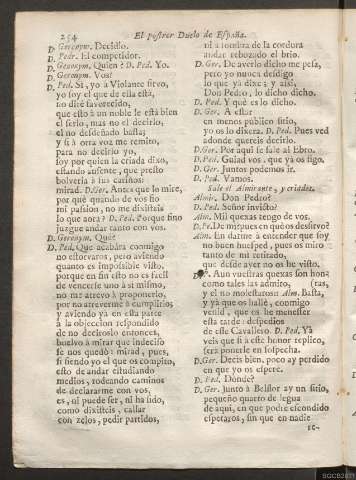 254 El postrer Duelo de España.
D. Geronym. Decidlo.
D. Pedr. El competidor.
D. Geronym. Quien? D. Ped. Yo.
D. Geronym. Vos?
D. Ped. Sí, yo à Violante sirvo,
yo soy el que de ella està,
no diré favorecido,
que esto à un noble le està bien
el serlo, mas no el decirlo,
el no desdeñado basta;
y si à otra voz me remito,
para no decirlo yo,
soy por quien la criada dixo,
estando ausente, que presto
bolveria à sus cariños:
mirad. D. Ger. Antes que lo mire,
por què quando de vos fio
mi passion, no me dixisteis
lo que aora? D. Ped. Porque fino
juzgue andar tanto con vos.
D. Geronym. Què?
D. Ped. Que acabàra conmigo
no estorvaros, pero aviendo
quanto es impossible visto,
porque en fin esto no es facil
de vencerse uno à sì mismo,
no me atrevo à proponerlo,
por no atreverme à cumplirlo;
y aviendo yà en esta parte
à la objeccion respondido
de no deciroslo entonces,
buelvo à mirar que indeciso
se nos quedò: mirad, pues,
si siendo yo el que os compito,
esto de andar estudiando
medios, rodeando caminos
de declararme con vos,
es, ni puede ser, ni ha sido,
como dixisteis, callar
con zelos, pedir partidos,
ni à sombra de la cordura
andar rebozado el brio.
D. Ger. De averlo dicho me pesa,
pero yo nunca desdigo
lo que yà dixe; y assi,
Don Pedro, lo dicho dicho.
D. Ped. Y què es lo dicho.
D. Ger. A estàr
en menos publico sitio,
yo os lo dixera. D. Ped. Pues ved
adonde quereis decirlo.
D. Ger. Por aqui se sale al Ebro.
D. Ped. Guiad vos, que yà os sigo.
D. Ger. Juntos podemos ir.
D. Ped. Vamos.
Sale el Almirante, y criados.
Almir. Don Pedro?
D. Ped. Señor invicto?
Alm. Mil quexas tengo de vos.
D. Pe. De mi? pues en què os desirvo?
Alm. En darme à entender que soy
no buen huesped, pues os miro
tanto de mi retirado,
que desde ayer no os he visto.
Aun vuestras quexas son hon-
como tales las admito, (ras,
y el no molestaros: Alm. Basta,
y yà que os hallè, conmigo
venid, que es he menester
esta tarde: despedios
de esse Cavallero. D. Ped. Yà
veis que si à este honor replico,
serà ponerle en sospecha.
D. Ger. Decis bien, poco ay perdido
en que yo os espere.
D. Ped. Dònde?
D. Ger. Junto à Belflor ay un sitio,
pequeño quarto de legua
de aqui, en que podrè escondido
esperaros, sin que en nadie